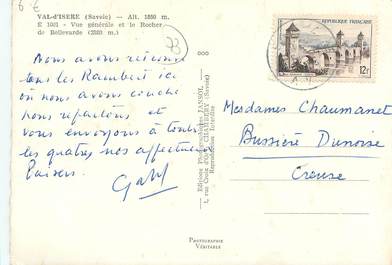 6 €
VAL-d'ISERE (Savoie) - Alt. 1850 m.
E 1001 - Vue générale et le Rocher
de Bellevarde (2820 m.)
73
Nous avons retrouvé
tous les Rambert ici
où nous avons couché
nous repartons et
vous envoyons à toutes
les quatres nos affectueux
baisers.
Editions Photographiques JANSOL
1, rue Croix d'Or, CHAMBÉRY (Savoie)
Reproduction Interdite
PHOTOGRAPHIE
VÉRITABLE
RÉPUBLIQUE FRANÇAISE
12F
Mesdames Chaumanet
Bussière Dunoise
Creuse